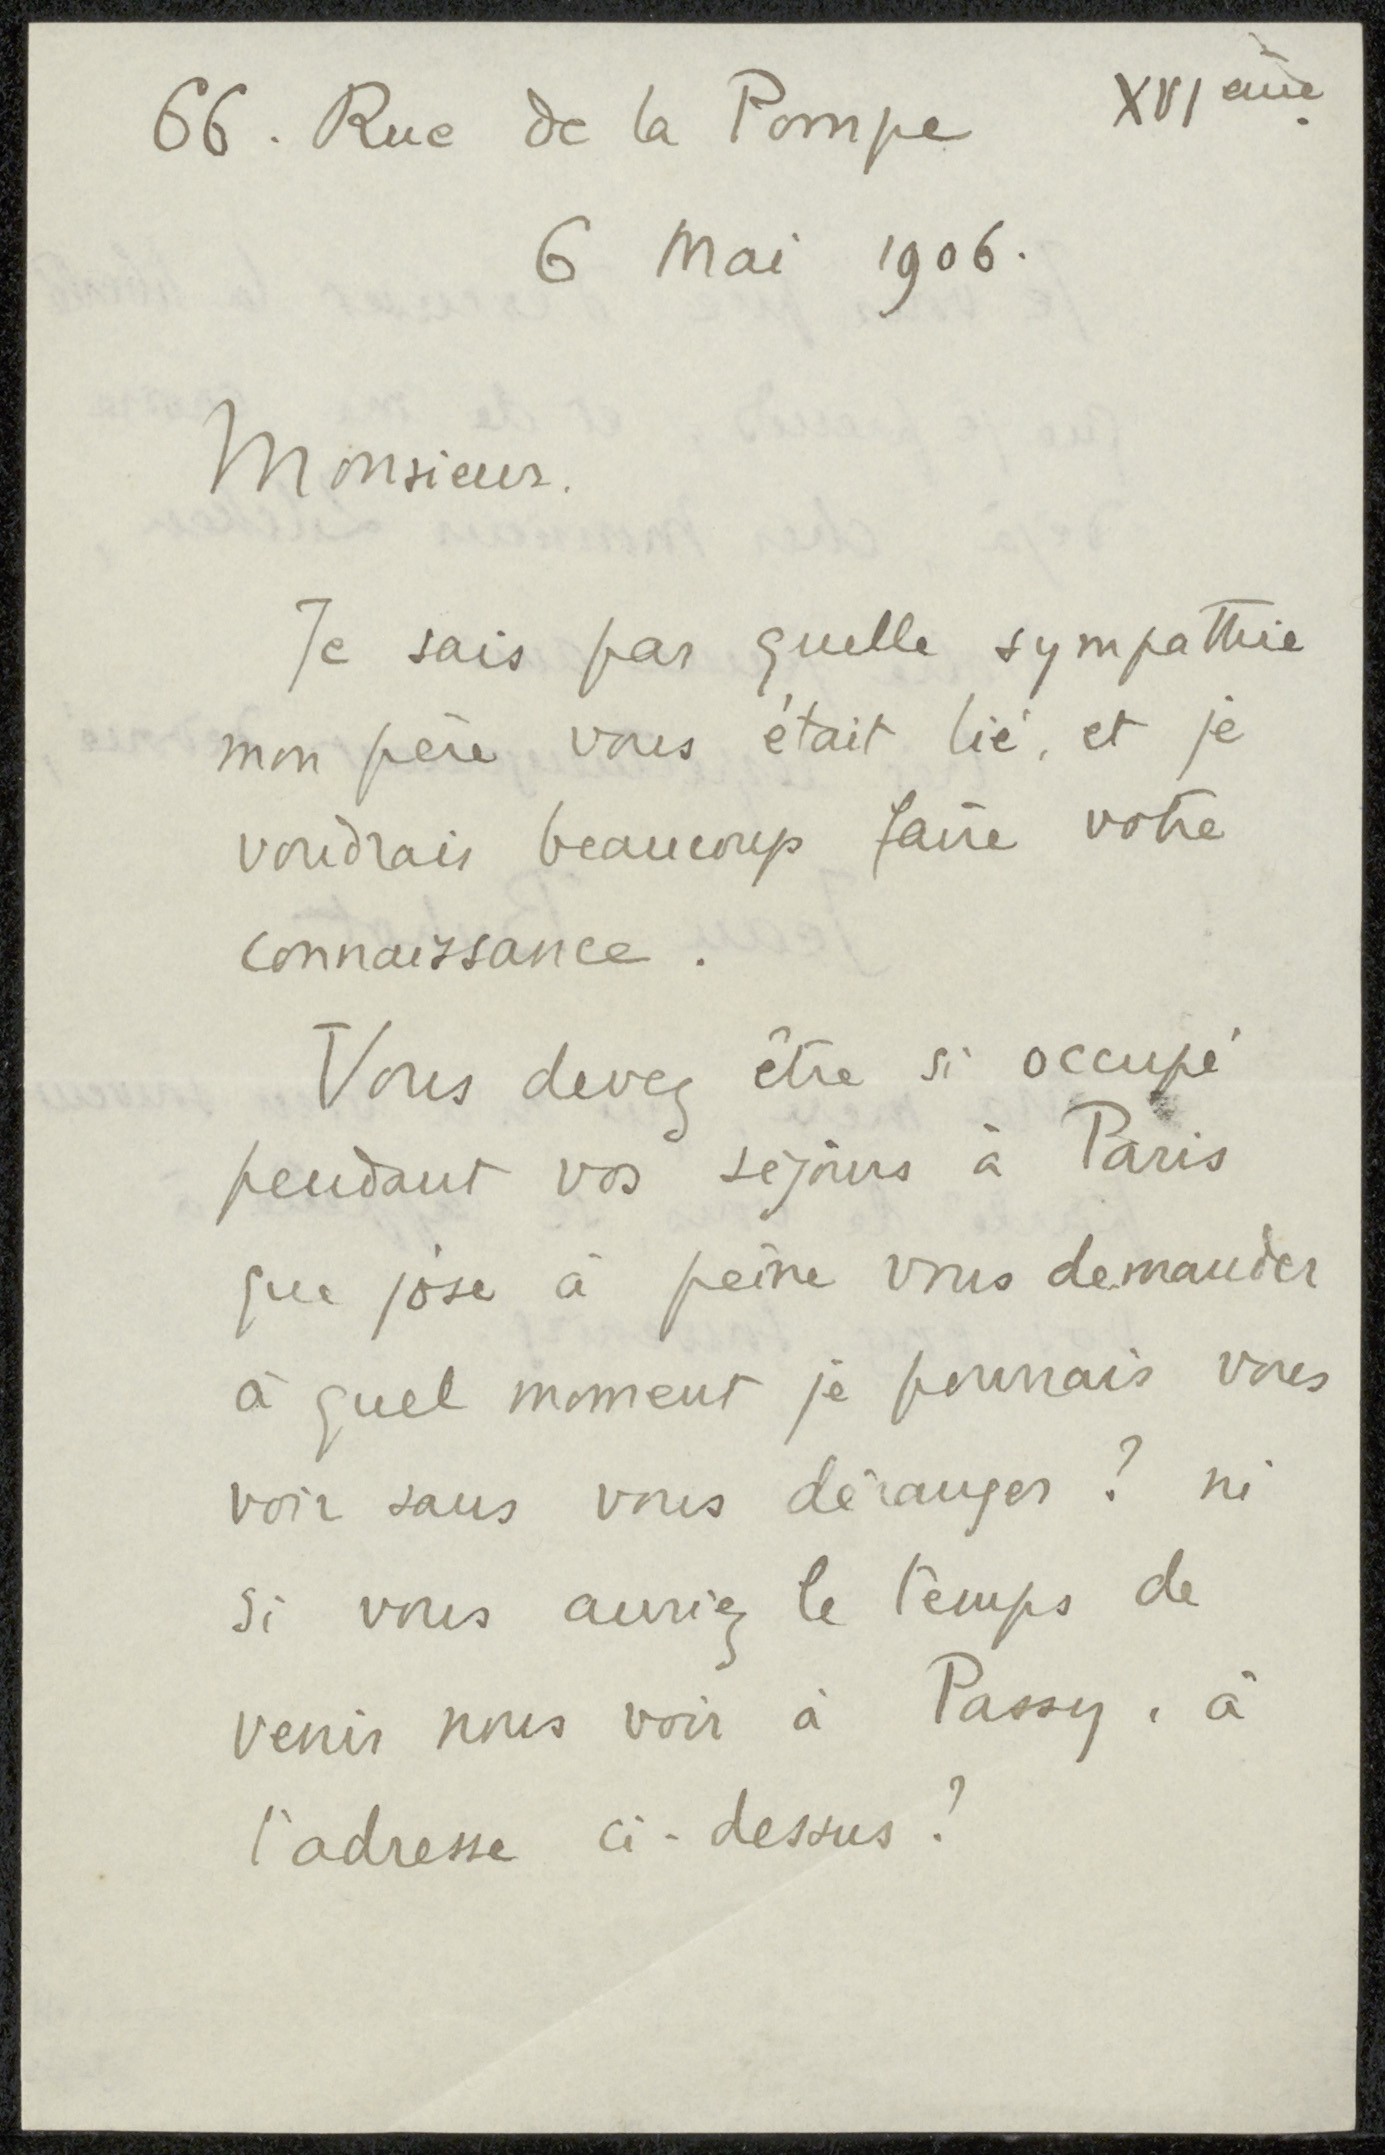 66. Rue de la Pompe XVI ème.
6 Mai 1906.
Monsieur.
Je sais par quelle sympathie
mon père vous était lié, et je
voudrais beaucoup faire votre
connaissance.
Vous devez être si occupé
pendant vos séjours à Paris
que j'ose à peine vous demander
à quel moment je pourrais vous
voir sans vous déranger ? ni
si vous auriez le temps de
venir nous voir à Passy, à
l'adresse ci-dessus ?